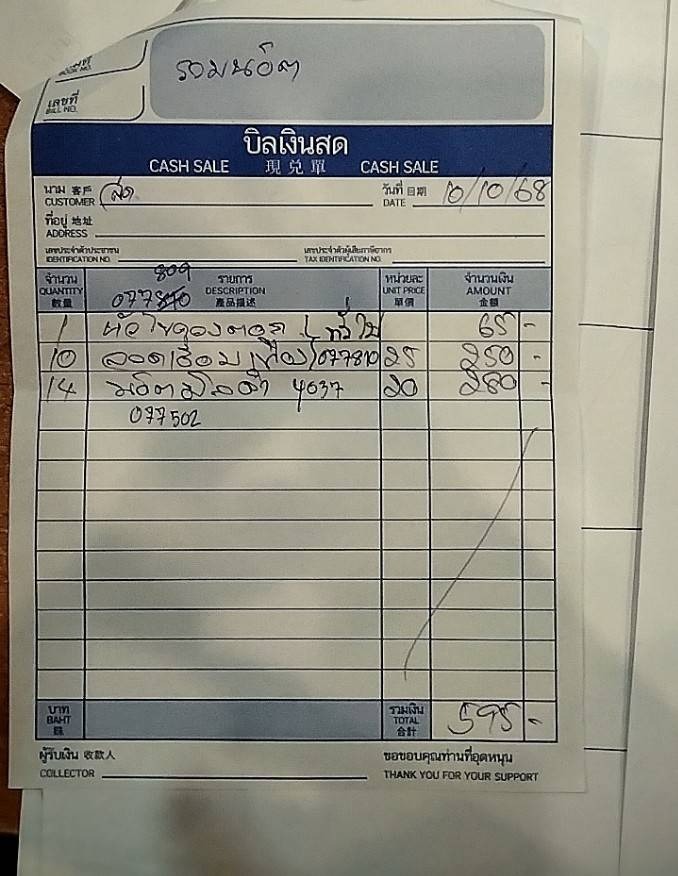 เล่มที่
BOOK NO.
รวมน๊อต
เลขที่
BILL NO.
บิลเงินสด
CASH SALE 現兌單 CASH SALE
นาม 客戶 สด วันที่ 日期 10/10/68
CUSTOMER DATE
ที่อยู่ 地址
ADDRESS
เลขประจำตัวประชาชน เลขประจำตัวผู้เสียภาษีอากร
IDENTIFICATION NO. TAX IDENTIFICATION NO.
809
จำนวน รายการ หน่วยละ จำนวนเงิน
QUANTITY 077 DESCRIPTION UNIT PRICE AMOUNT
數量 產品描述 單價 金額
1 หัวไขควงตอก 65 -
10 ลวดเชื่อม 077810 25 250 -
14 น๊อต 4037 20 280 -
077502
บาท รวมเงิน
BAHT TOTAL 595 -
銖 合計
ผู้รับเงิน 收款人 ขอขอบคุณท่านที่อุดหนุน
COLLECTOR THANK YOU FOR YOUR SUPPORT